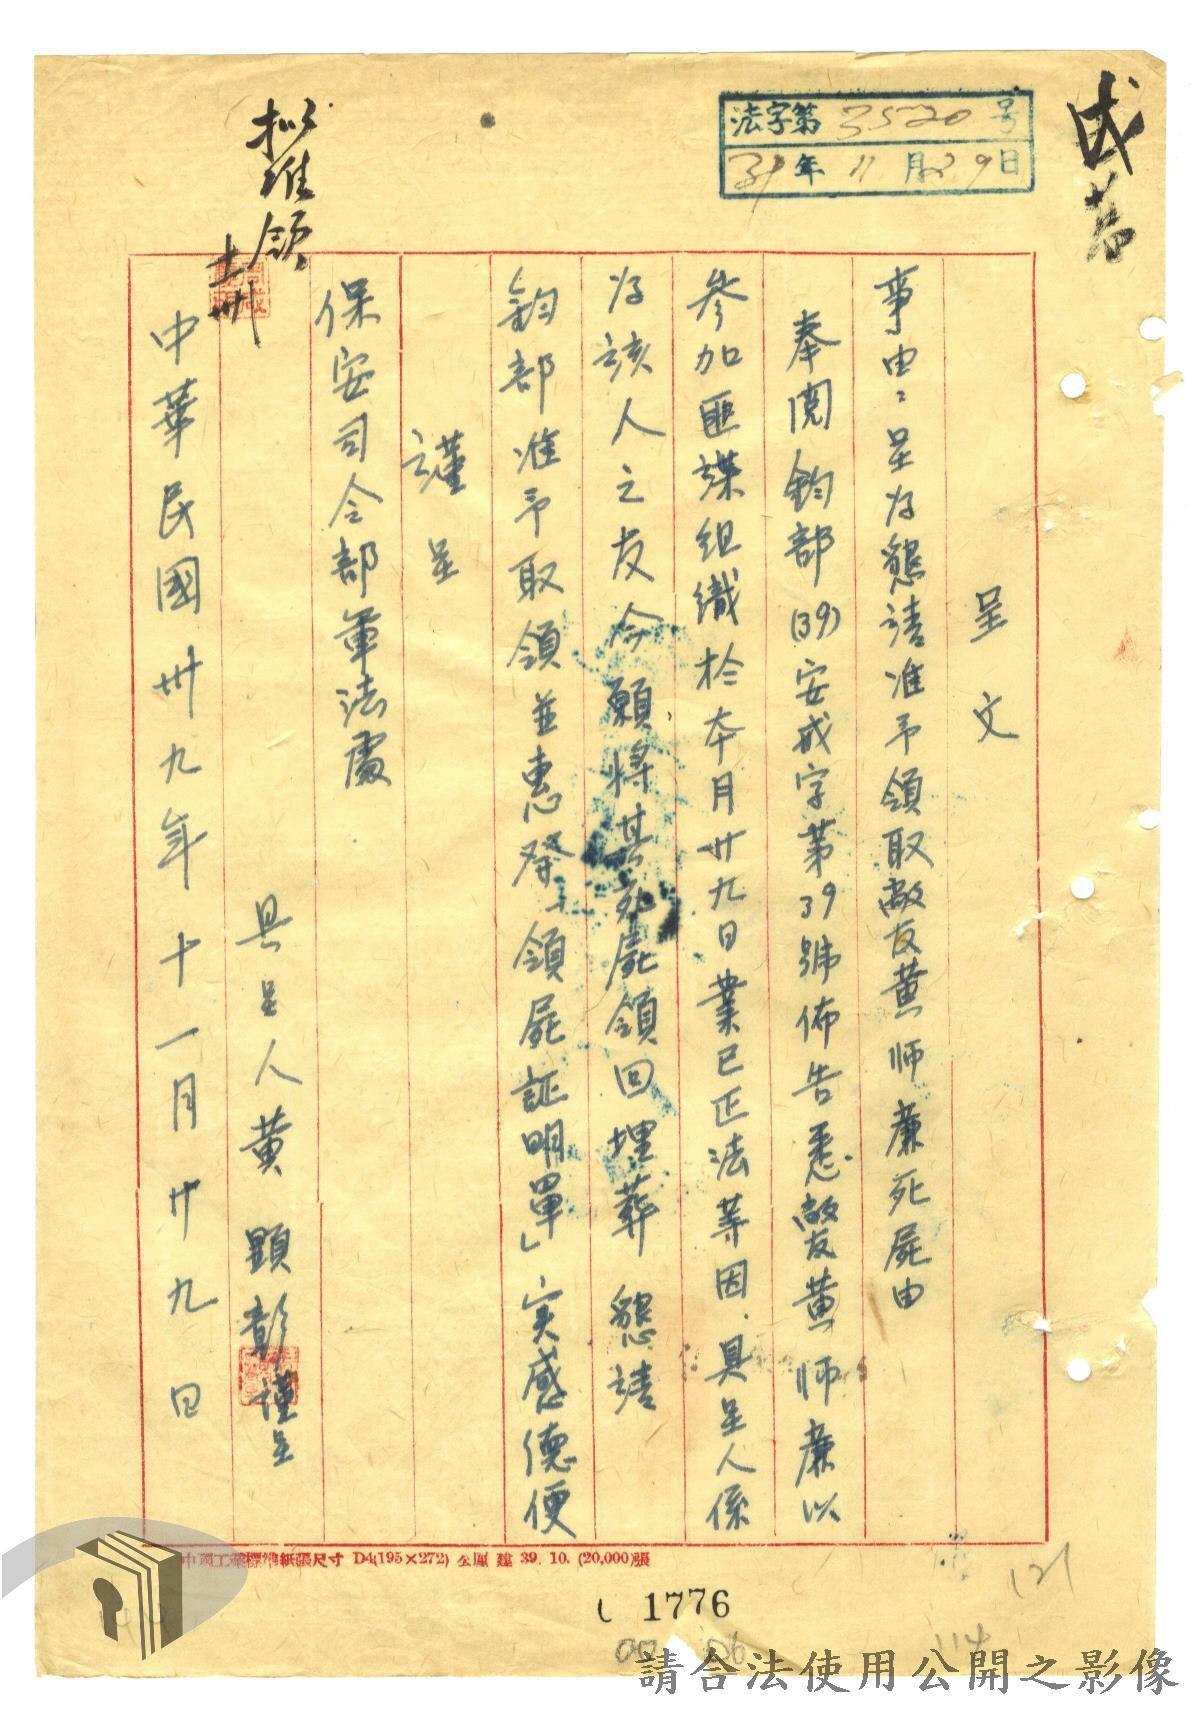 法字第3520号
39年11月29日
呈文
事由：呈为懇請准予領取敝友黄师廉死屍由
奉閱鈞部(39)安戒字第39號佈告悉敝友黄师廉以
参加匪諜组織於本月廿九日業已正法等因.具呈人係
为該人之友今願將其死屍領回埋葬懇請
鈞部准予取領並惠發「領屍証明單」实感德便
謹呈
保安司令部軍法處
具呈人黄顕彰谨呈
中華民國卅九年十一月廿九日
拟准領
中國工業標準紙張尺寸 D4(195×272) 公厘 建 39. 10. (20,000)張
1776
121
114
請合法使用公開之影像